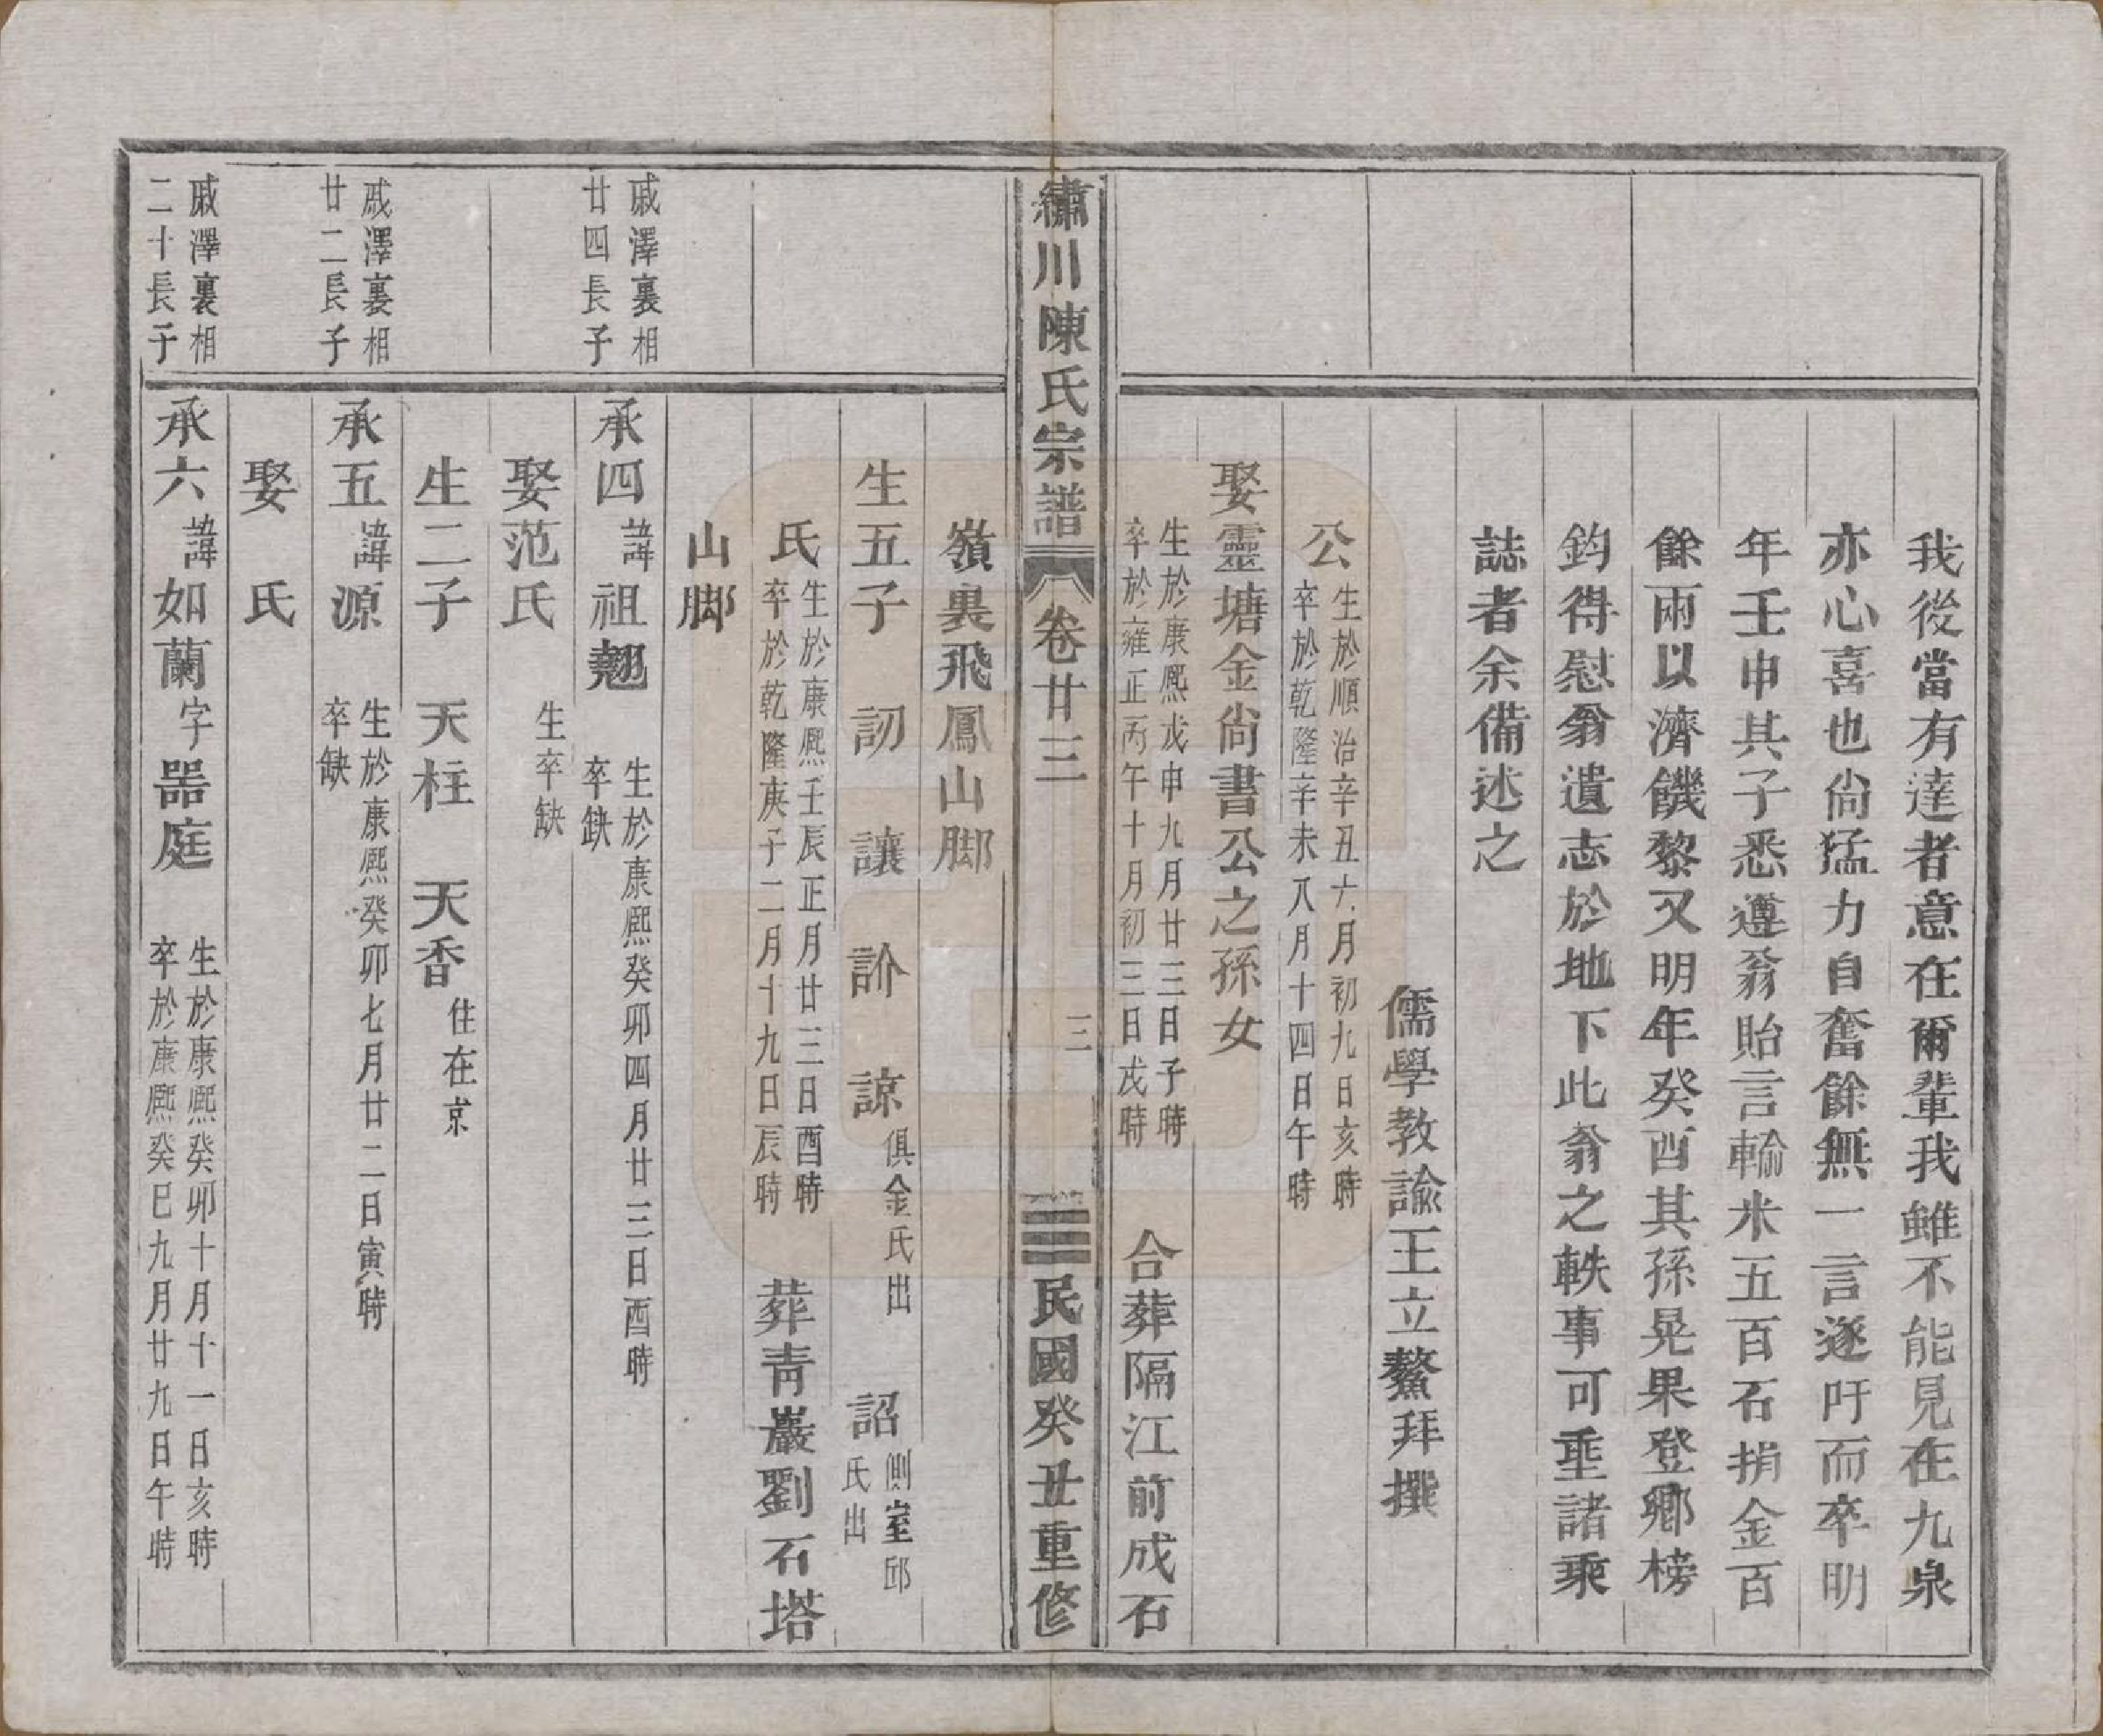 我後當有達者意在爾輩我雖不能見在九泉
亦心喜也尙猛力自奮餘無一言逐吁而卒明
年壬申其子悉遵翁貽言輸米五百石捐金百
餘兩以濟饑黎又明年癸酉其孫晃果登鄉榜
鈞得慰翁遺志於地下此翁之軼事可垂諸乘
誌者余備述之
儒學教諭王立鰲拜撰
公
生於順治辛丑六月初九日亥時
卒於乾隆辛未八月十四日午時
娶靈塘金尙書公之孫女
生於康熙戊申九月廿三日子時
卒於雍正丙午十月初三日戌時
合葬隔江前成石
繡川陳氏宗譜
卷廿三
三
民國癸丑重修
嶺裏飛鳳山脚
生五子 訒 讓 䚸 諒
俱金氏出
詔
側室邱
氏出
氏
生於康熙壬辰正月廿三日酉時
卒於乾隆庚子二月十九日辰時
葬青巖劉石塔
山脚
戚澤裏相
廿四長子
承四
諱
祖翹
生於康熙癸卯四月廿三日酉時
卒缺
娶范氏
生卒缺
生二子 天柱 天香
住在京
戚澤裏相
廿二長子
承五
諱
源
生於康熙癸卯七月廿二日寅時
卒缺
娶 氏
戚澤裏相
二十長子
承六
諱
如蘭
字
噐庭
生於康熙癸卯十月十一日亥時
卒於康熙癸巳九月廿九日午時